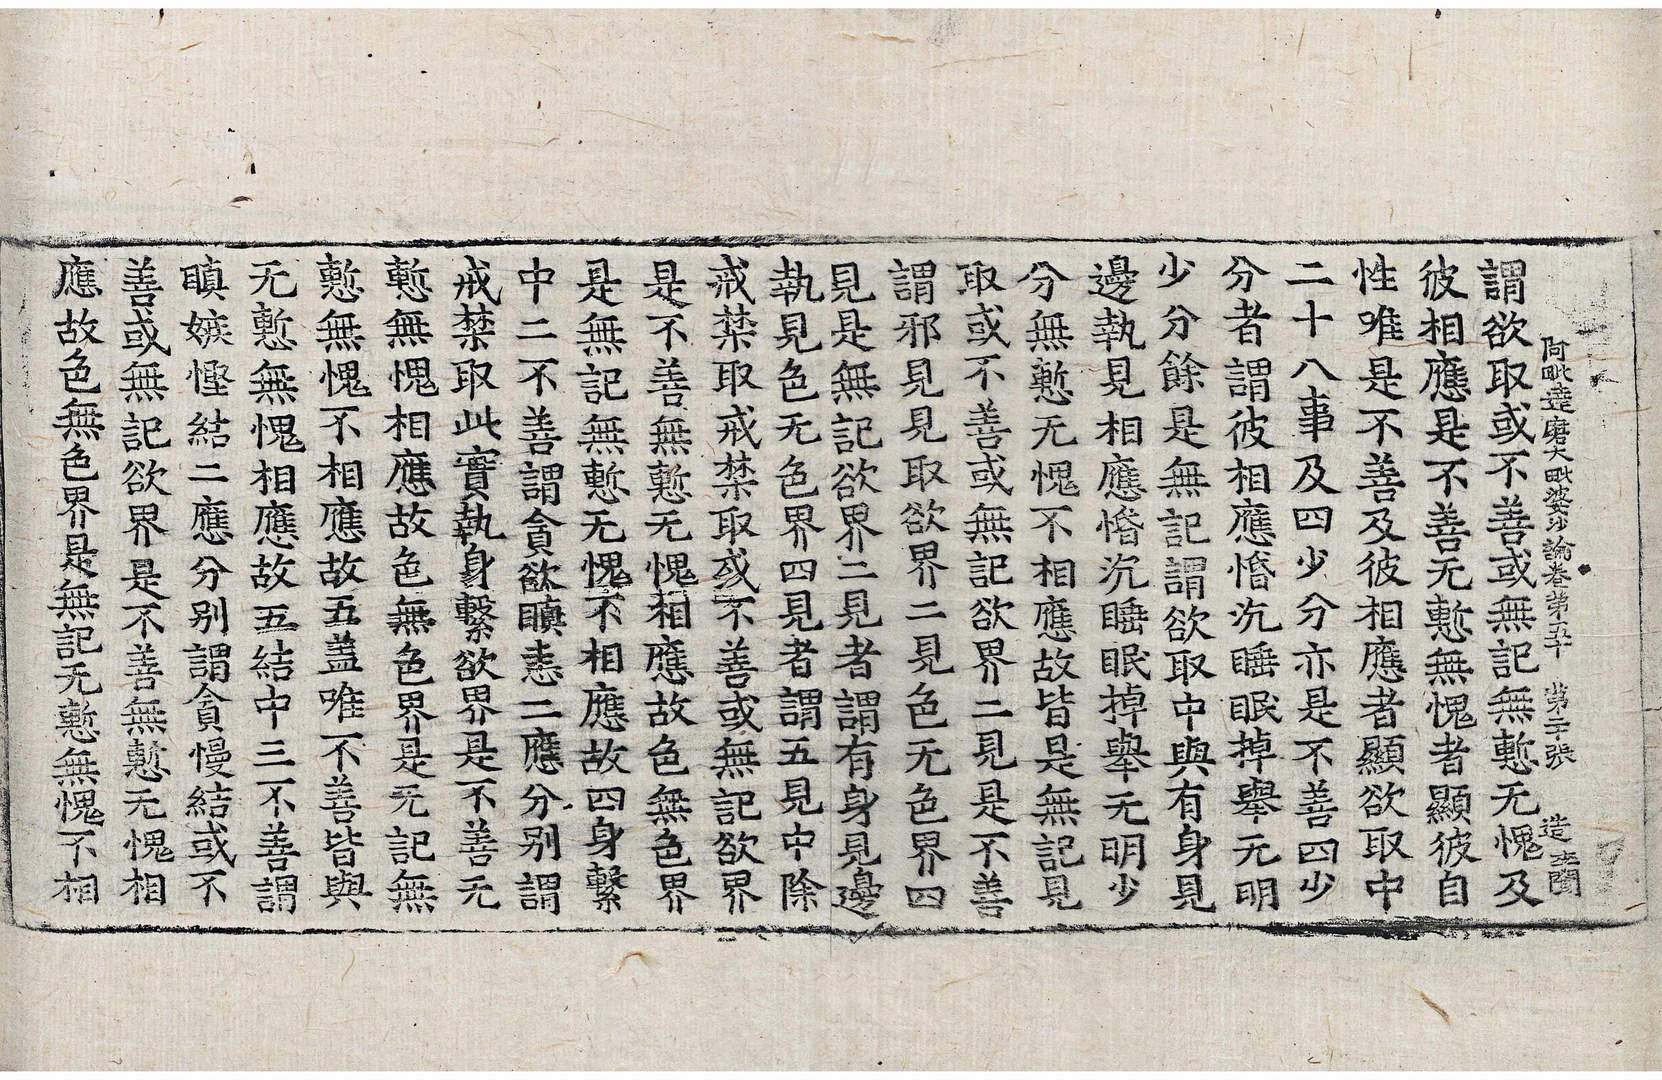 阿毗達磨大毗婆沙論卷第五十 第 張 造
謂欲取或不善或無記無慙无愧及
彼相應是不善无慙無愧者顯彼自
性唯是不善及彼相應者顯欲取中
二十八事及四少分亦是不善四少
分者謂彼相應惛沉睡眠掉舉无明
少分餘是無記謂欲取中與有身見
邊執見相應惛沉睡眠掉舉无明少
分無慙无愧不相應故皆是無記見
取或不善或無記欲界二見是不善
謂邪見見取欲界二見色无色界四
見是無記欲界二見者謂有身見邊
執見色无色界四見者謂五見中除
戒禁取戒禁取或不善或無記欲界
是不善無慙无愧相應故色無色界
是無記無慙无愧不相應故四身繫
中二不善謂貪欲瞋恚二應分别謂
戒禁取此實執身繫欲界是不善无
慙無愧相應故色無色界是无記無
慙無愧不相應故五蓋唯不善皆與
无慙無愧相應故五結中三不善謂
瞋嫉慳結二應分别謂貪慢結或不
善或無記欲界是不善無慙无愧相
應故色無色界是無記无慙無愧不相